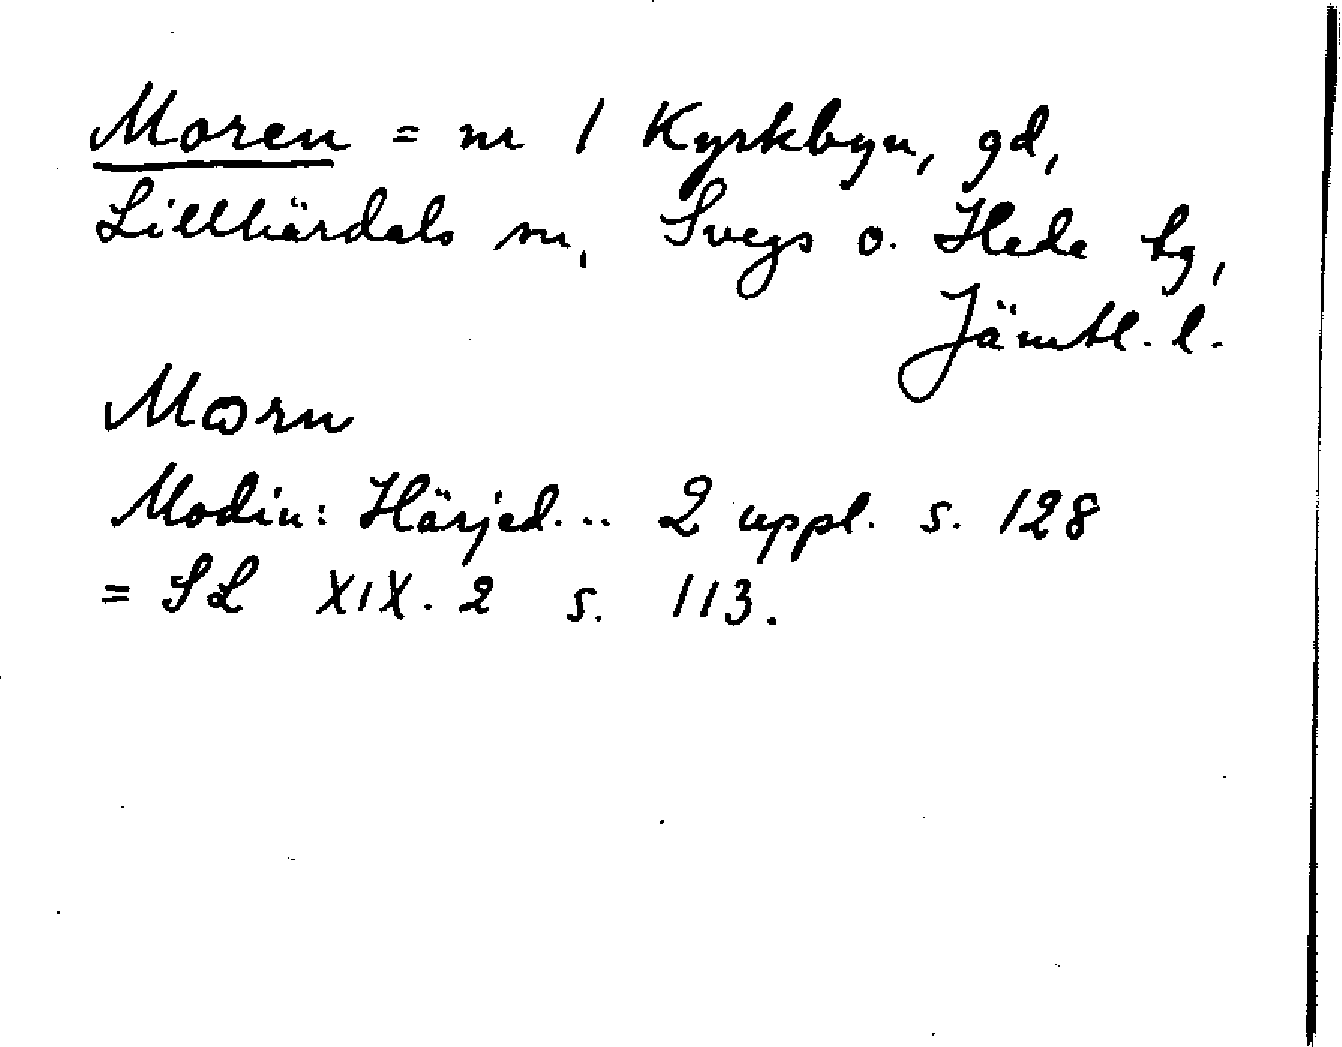 Moren = nr 1 Kyrkbyn, gd,
Lillhärdals sn, Svegs o. Hede tg,
Jämtl. l.
Mɷrn
Modin: Härjed... 2 uppl. s. 128
= SL XIX. 2 s. 113.